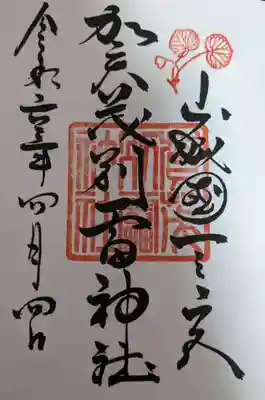 山城國一之宮
賀茂別雷神社
令和年四月四日